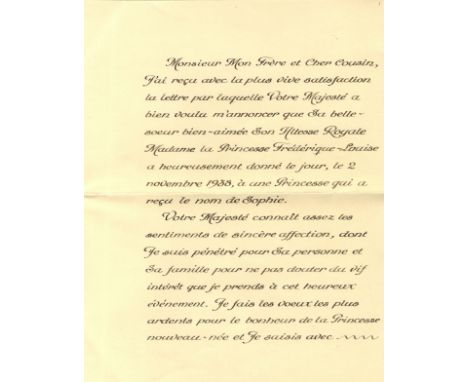 Monsieur Mon Frère et Cher Cousin,
J'ai reçu avec la plus vive satisfaction
la lettre par laquelle Votre Majesté a
bien voulu m'annoncer que Sa belle-
soeur bien-aimée Son Altesse Royale
Madame la Princesse Frédérique-Louise
a heureusement donné le jour, le 2
novembre 1938, à une Princesse qui a
reçu le nom de Sophie.
Votre Majesté connaît assez les
sentiments de sincère affection, dont
Je suis pénétré pour Sa personne et
Sa famille pour ne pas douter du vif
intérêt que je prends à cet heureux
événement. Je fais les voeux les plus
ardents pour le bonheur de la Princesse
nouveau-née et Je saisis avec